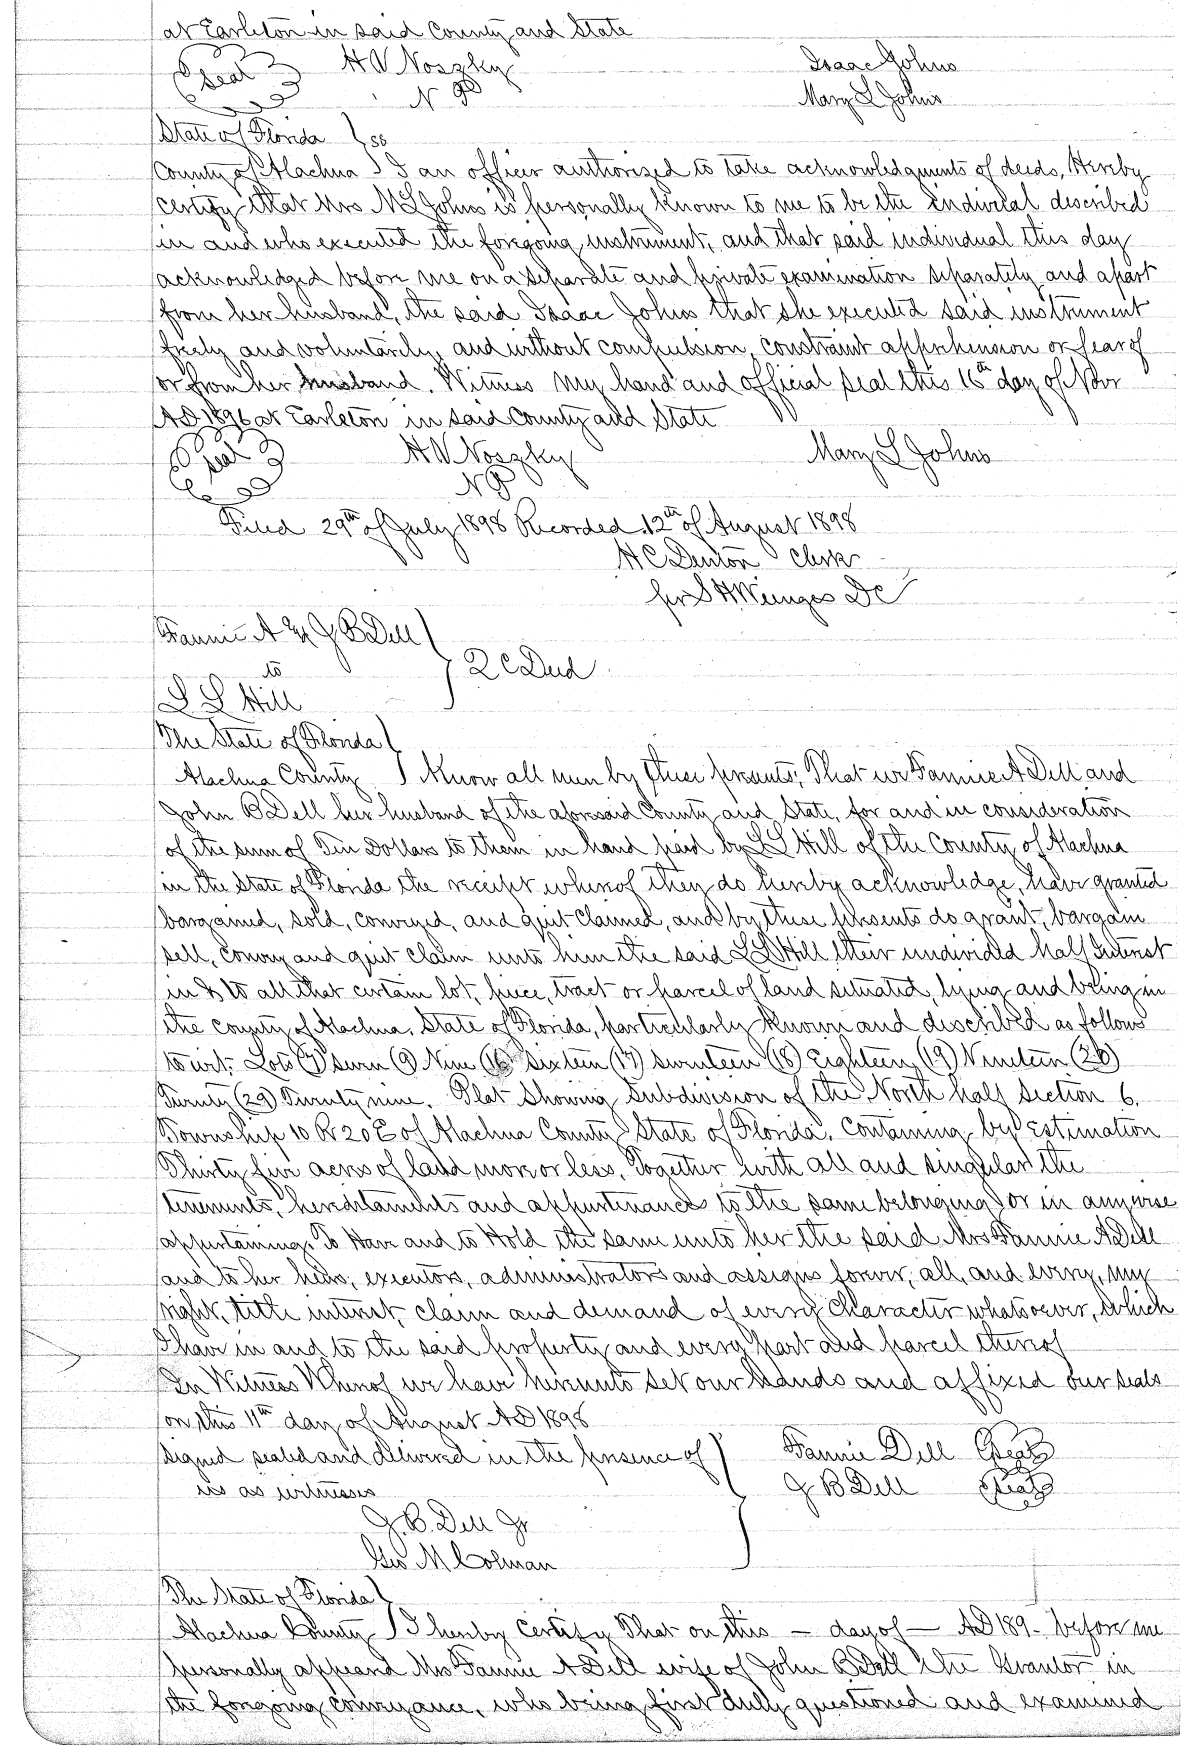 at Earleton in said County and State
(Seal) H V Noszky Isaac Johns
N P Mary L Johns
State of Florida } ss
County of Alachua } I an officer authorized to take acknowledgments of deeds, Hereby
certify that Mrs M L Johns is personally known to me to be the indivial described
in and who executed the foregoing instrument, and that said individual this day
acknowledged before me on a separate and private examination separately and apart
from her husband, the said Isaac Johns that she executed said instrument
freely and voluntarily, and without compulsion, constraint apprehension or fear of
or from her husband. Witness my hand and official seal this 16th day of Novr
AD 1896 at Earleton in said County and State
(Seal) H V Noszky Mary L Johns
N P
Filed 29th of July 1898 Recorded 12th of August 1898
H C Denton Clerk
per S H Wienges DC
Fannie A & J B Dell }
to } Q C Deed
L L Hill
The State of Florida }
Alachua County } Know all men by these presents; That we Fannie A Dell and
John B Dell her husband of the aforesaid County and State, for and in consideration
of the sum of Ten Dollars to them in hand paid by L L Hill of the County of Alachua
in the State of Florida the receipt whereof they do hereby acknowledge, have granted
bargained, sold, conveyed, and quit claimed, and by these presents do grant, bargain
sell, convey and quit claim unto him the said L L Hill their undivided half interest
in & to all that certain lot, piece, tract or parcel of land situated, lying and being in
the county of Alachua, State of Florida, particularly known and described as follows
to wit: Lots (7) seven (9) Nine (16) sixteen (17) seventeen (18) Eighteen, (19) Nineteen (20)
Twenty (29) Twenty nine. Plat showing subdivision of the North half Section 6,
Township 10 R 20 E of Alachua County State of Florida. Containing by Estimation
Thirty five acres of land more or less. Together with all and singular the
tenements, hereditaments and appurtenances to the same belonging or in anywise
appertaining. To Have and to Hold the same unto her the said Mrs Fannie A Dell
and to her heirs, executors, administrators and assigns forever, all, and every, my
right, title interest, claim and demand of every character whatsoever, which
I have in and to the said property and every part and parcel thereof
In Witness Whereof we have hereunto set our hands and affixed our seals
on this 11th day of August AD 1898
Signed sealed and delivered in the presence of } Fannie Dell (Seal)
us as witnesses J B Dell (Seal)
J. B. Dell Jr
Geo M Colman
The State of Florida }
Alachua County } I hereby certify That on this — day of — AD 189- before me
personally appeared Mrs Fannie A Dell wife of John B Dell the Grantor in
the foregoing conveyance, who being first duly questioned and examined